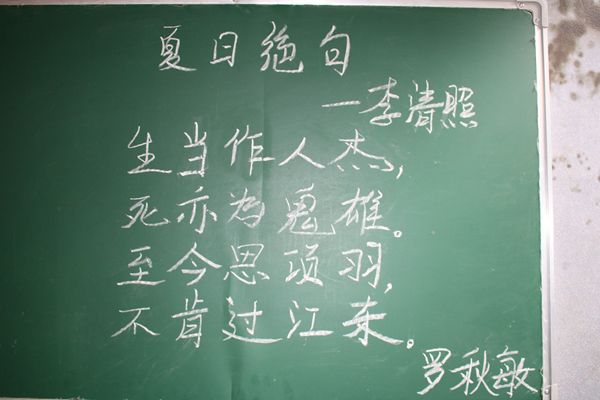 夏日绝句
一李清照
生当作人杰,
死亦为鬼雄。
至今思项羽,
不肯过江东。
罗秋敏